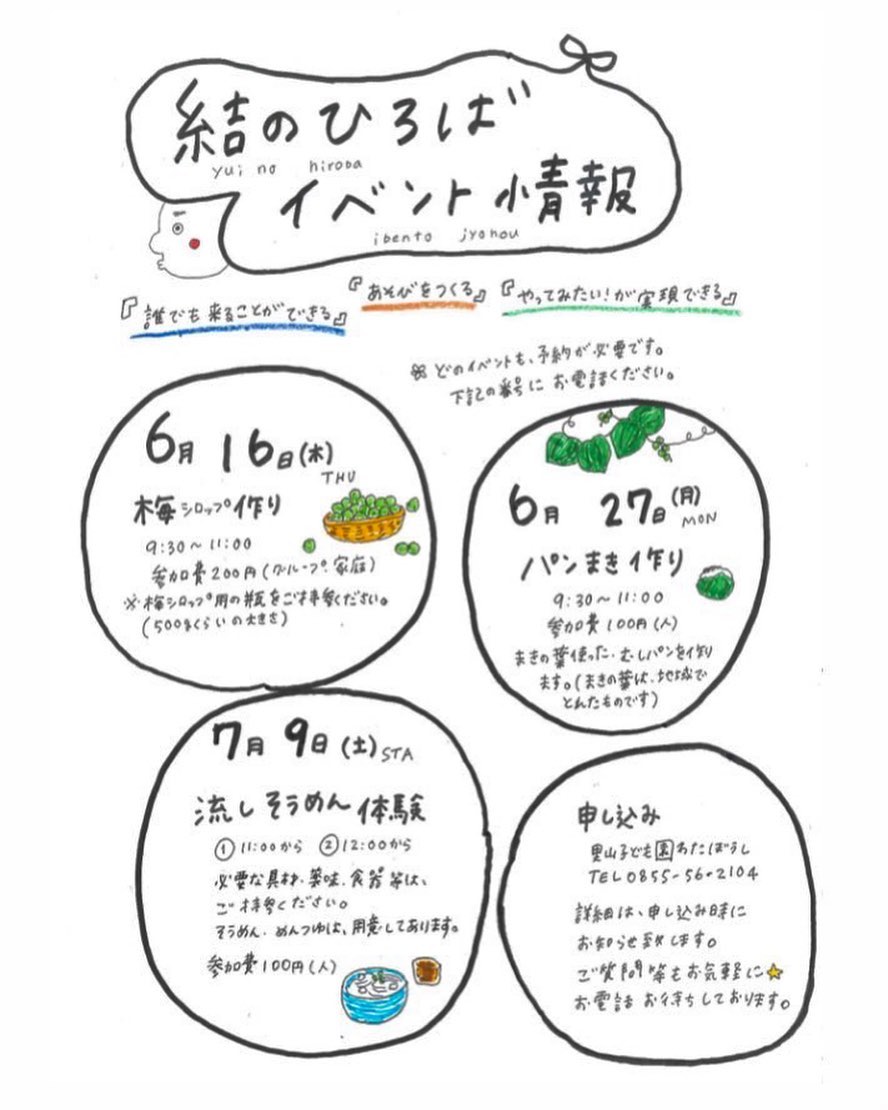 結のひろば
yui no hiroba
イベント情報
ibento jyohou
『誰でも来ることができる』
『あそびをつくる』
『やってみたい!が実現できる』
どのイベントも、予約が必要です。
下記の番号にお電話ください。
6月 16日(木)
THU
梅シロップ作り
9:30〜11:00
参加費200円(グループ・家庭)
※梅シロップ用の瓶をご持参ください。
(500㎖くらいの大きさ)
6月 27日(月)
MON
パンまき作り
9:30〜11:00
参加費100円(人)
まきの葉使った、むしパンを作り
ます。(まきの葉は、地域で
とれたものです)
7月 9日(土)STA
流しそうめん体験
①11:00から ②12:00から
必要な具材、薬味、食器等は、
ご持参ください。
そうめん、めんつゆは、用意してあります。
参加費100円(人)
申し込み
里山子ども園わたぼうし
TEL0855-56-2104
詳細は、申し込み時に
お知らせ致します。
ご質問等もお気軽に☆
お電話お待ちしております。